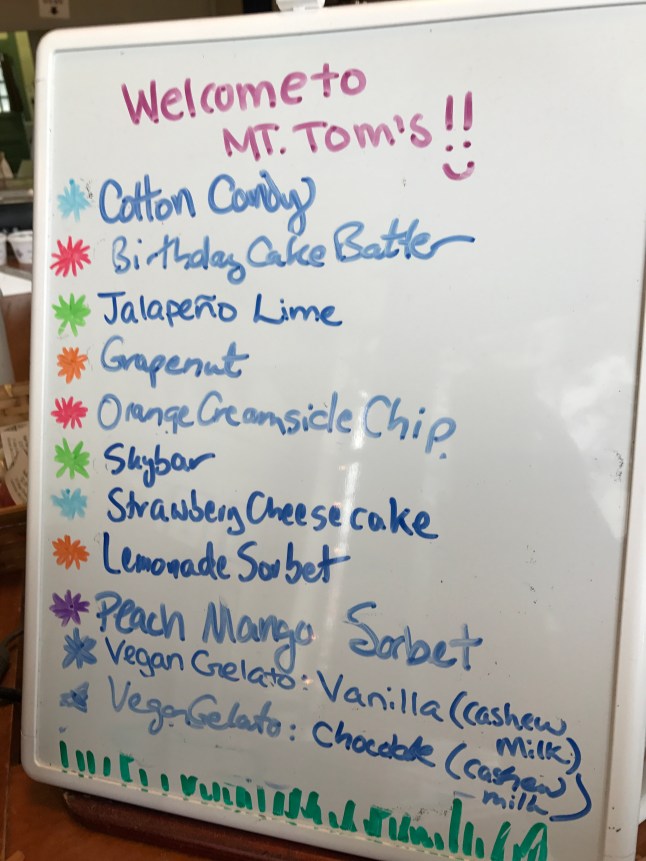 Welcome to
MT. TOM's!!
Cotton Candy
Birthday Cake Batter
Jalapeño Lime
Grapenut
Orange Creamsicle Chip.
Skybar
Strawberry Cheesecake
Lemonade Sorbet
Peach Mango Sorbet
Vegan Gelato: Vanilla (cashew
milk)
Vegan Gelato: Chocolate (cashew
milk)